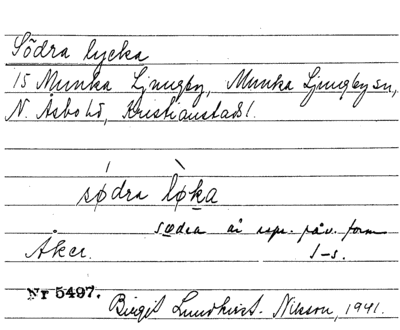 Södra lycka
15 Munka Ljungby, Munka Ljungby sn,
N. Åsbo hd, Kristianstads l.
sødra lø̀ka
södra är rspr. påv. form
Åker. 1-s.
Nr 5497.
Birgit Lundkvist-Nilsson, 1941.